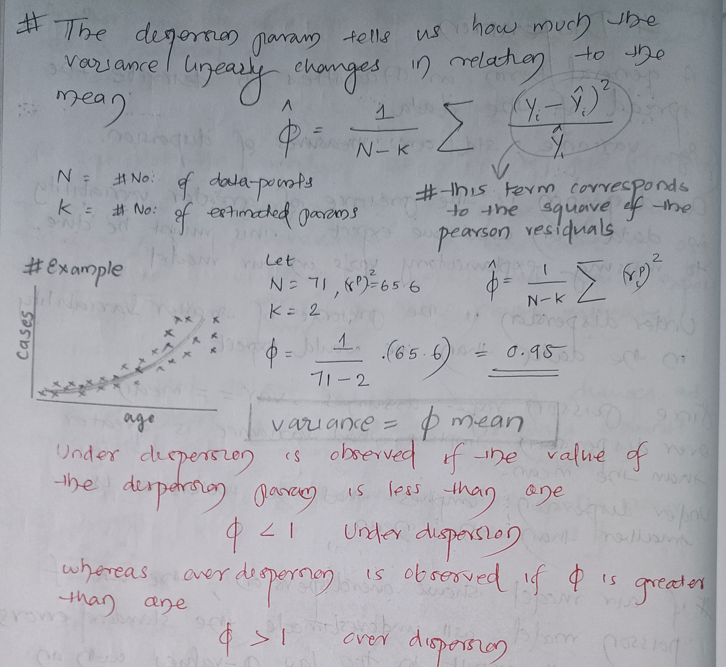 # The dispersion param tells us how much the
variance linearly changes in relation to the
mean
φ̂ = 1/(N-k) Σ (yᵢ - ŷᵢ)²/ŷᵢ
N = # No: of data-points
k = # No: of estimated params
# this term corresponds
to the square of the
pearson residuals
# Example
cases
age
Let
N = 71, (rᵖ)²=65.6
k = 2
φ̂ = 1/(N-k) Σ (rᵢᵖ)²
φ = 1/(71-2) .(65.6) = 0.95
variance = φ mean
Under dispersion is observed if the value of
the dispersion param is less than one
φ < 1 Under dispersion
whereas over dispersion is observed if φ is greater
than one
φ > 1 over dispersion